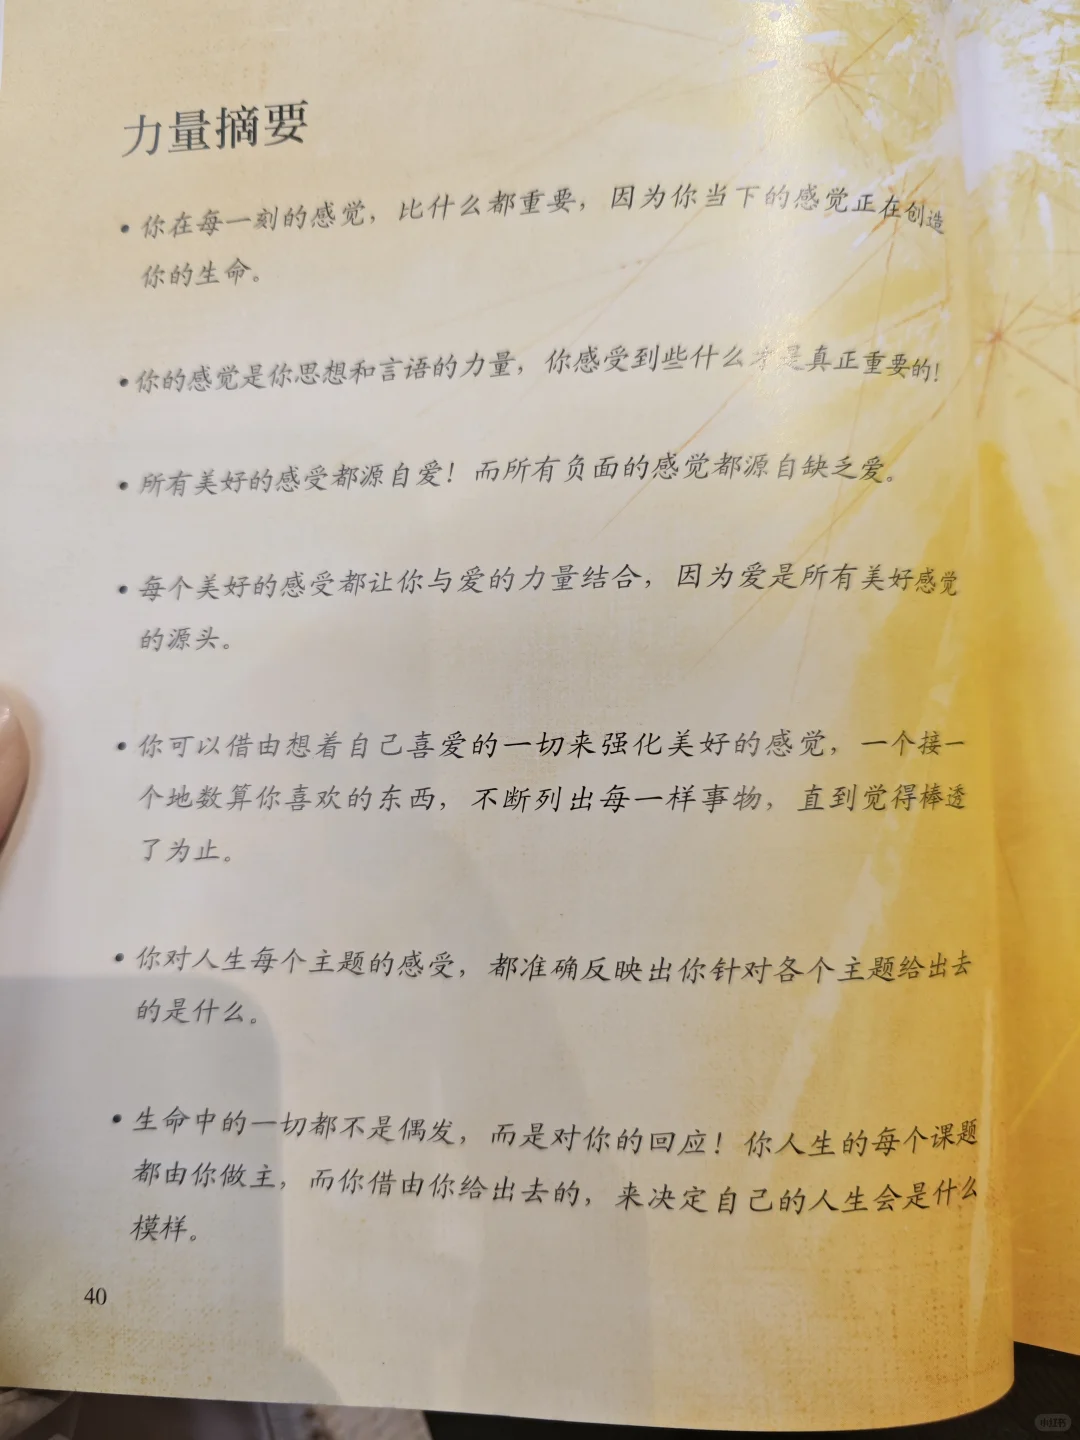 力量摘要
• 你在每一刻的感觉，比什么都重要，因为你当下的感觉正在创造
你的生命。
• 你的感觉是你思想和言语的力量，你感受到些什么才是真正重要的！
• 所有美好的感受都源自爱！而所有负面的感觉都源自缺乏爱。
• 每个美好的感受都让你与爱的力量结合，因为爱是所有美好感觉
的源头。
• 你可以借由想着自己喜爱的一切来强化美好的感觉，一个接一
个地数算你喜欢的东西，不断列出每一样事物，直到觉得棒透
了为止。
• 你对人生每个主题的感受，都准确反映出你针对各个主题给出去
的是什么。
• 生命中的一切都不是偶发，而是对你的回应！你人生的每个课题
都由你做主，而你借由你给出去的，来决定自己的人生会是什么
模样。
40
小红书